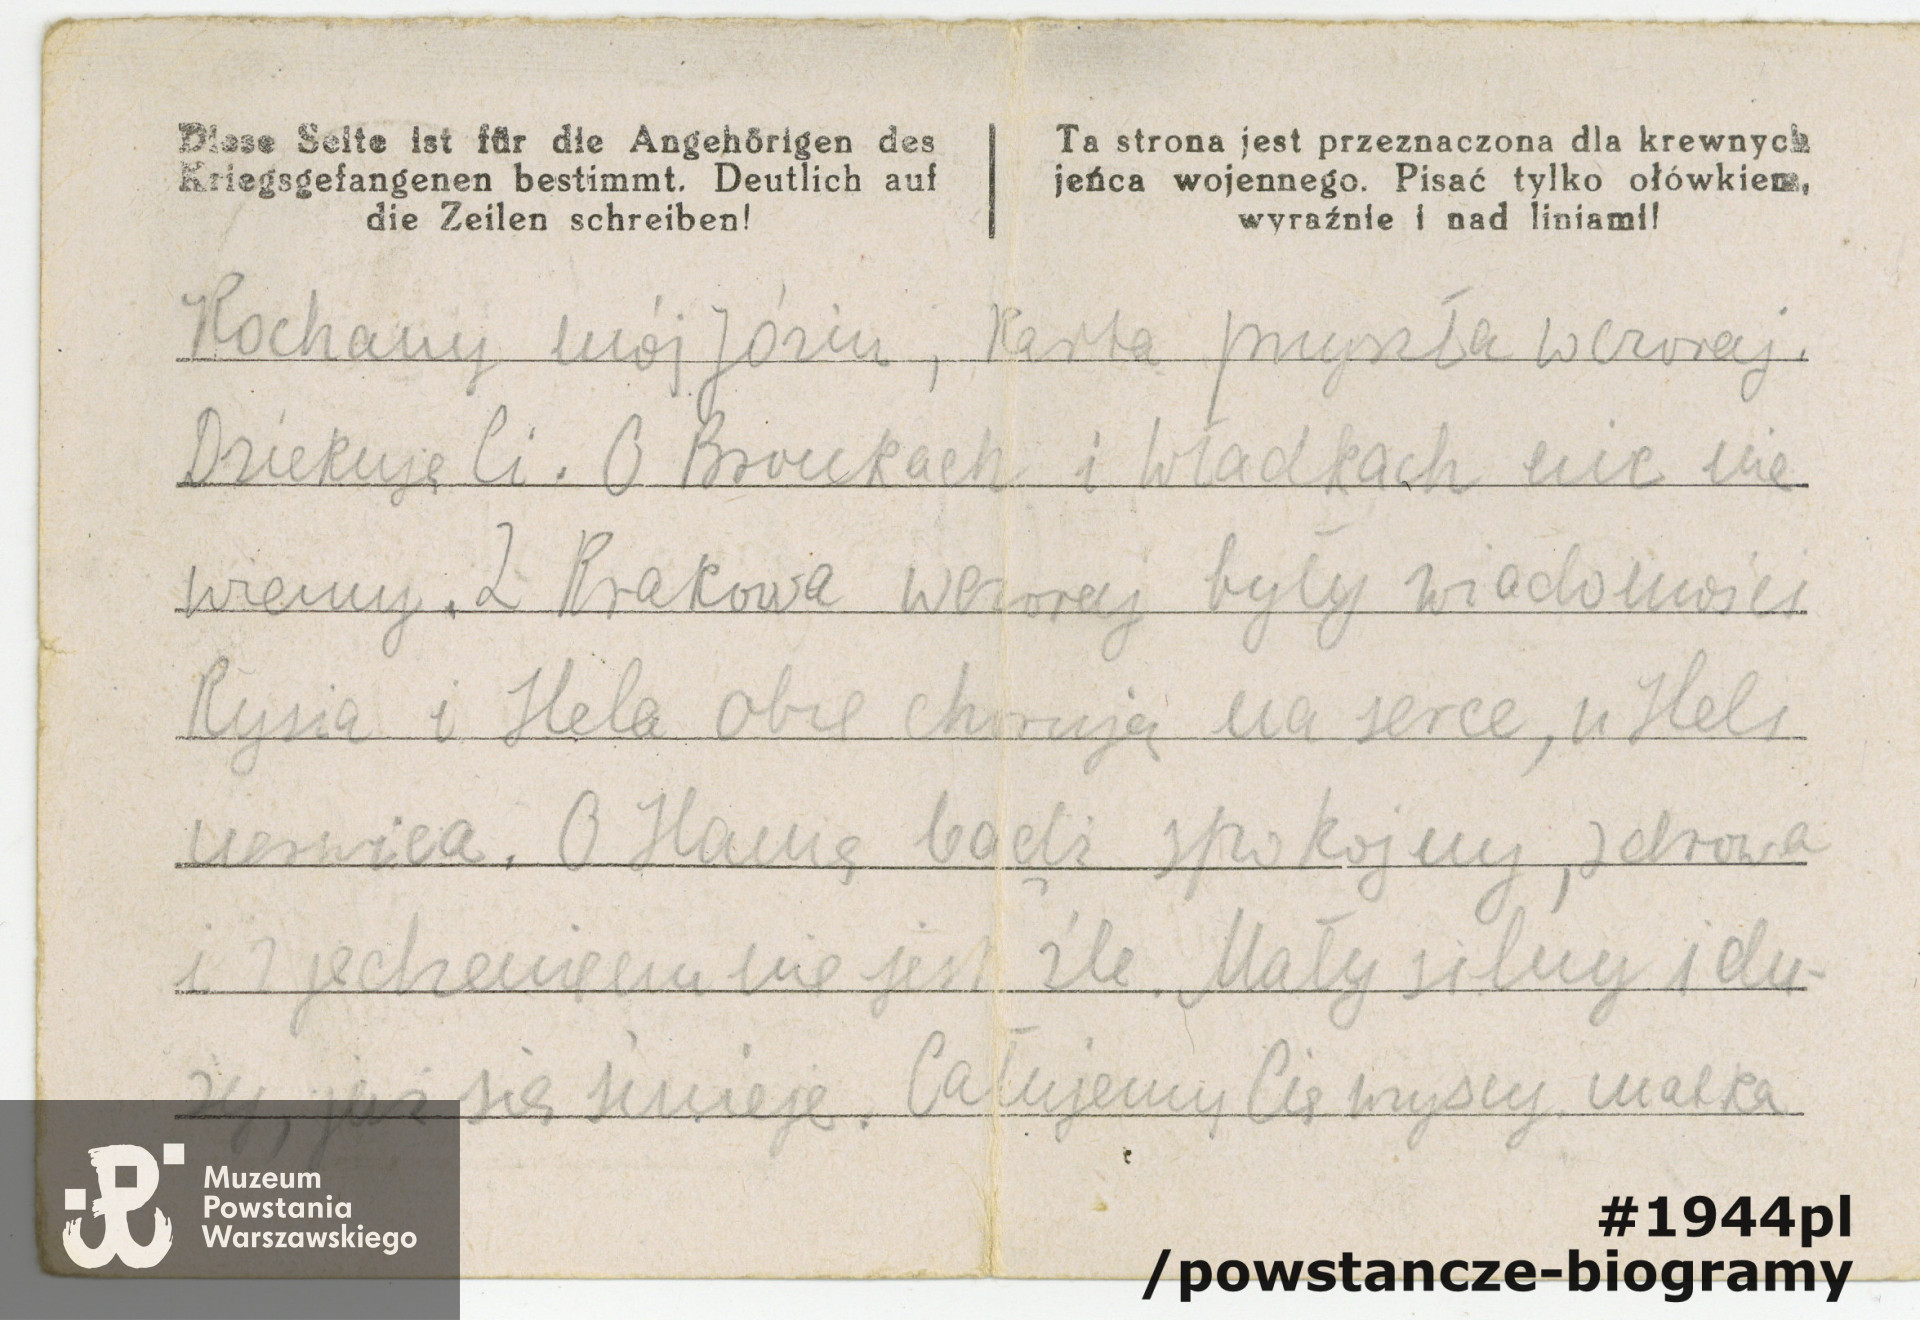 Diese Seite ist für die Angehörigen des
Kriegsgefangenen bestimmt. Deutlich auf
die Zeilen schreiben!
Ta strona jest przeznaczona dla krewnych
jeńca wojennego. Pisać tylko ołówkiem,
wyraźnie i nad liniami!
Kochany mój Józiu, Karta przyszła wczoraj.
Dziekuję Ci. O Bronkach i Władkach nic nie
wiemy. Z Krakowa wczoraj były wiadomości
Rysia i Hela obie chorują na serce, u Heli
nerwica. O Hanię bądź spokojny, zdrowa
i z jedzeniem nie jest źle. Mały silny i du-
ży, już się śmieje. Całujemy Cię wszyscy. matka
Muzeum
Powstania
Warszawskiego
#1944pl
/powstancze-biogramy